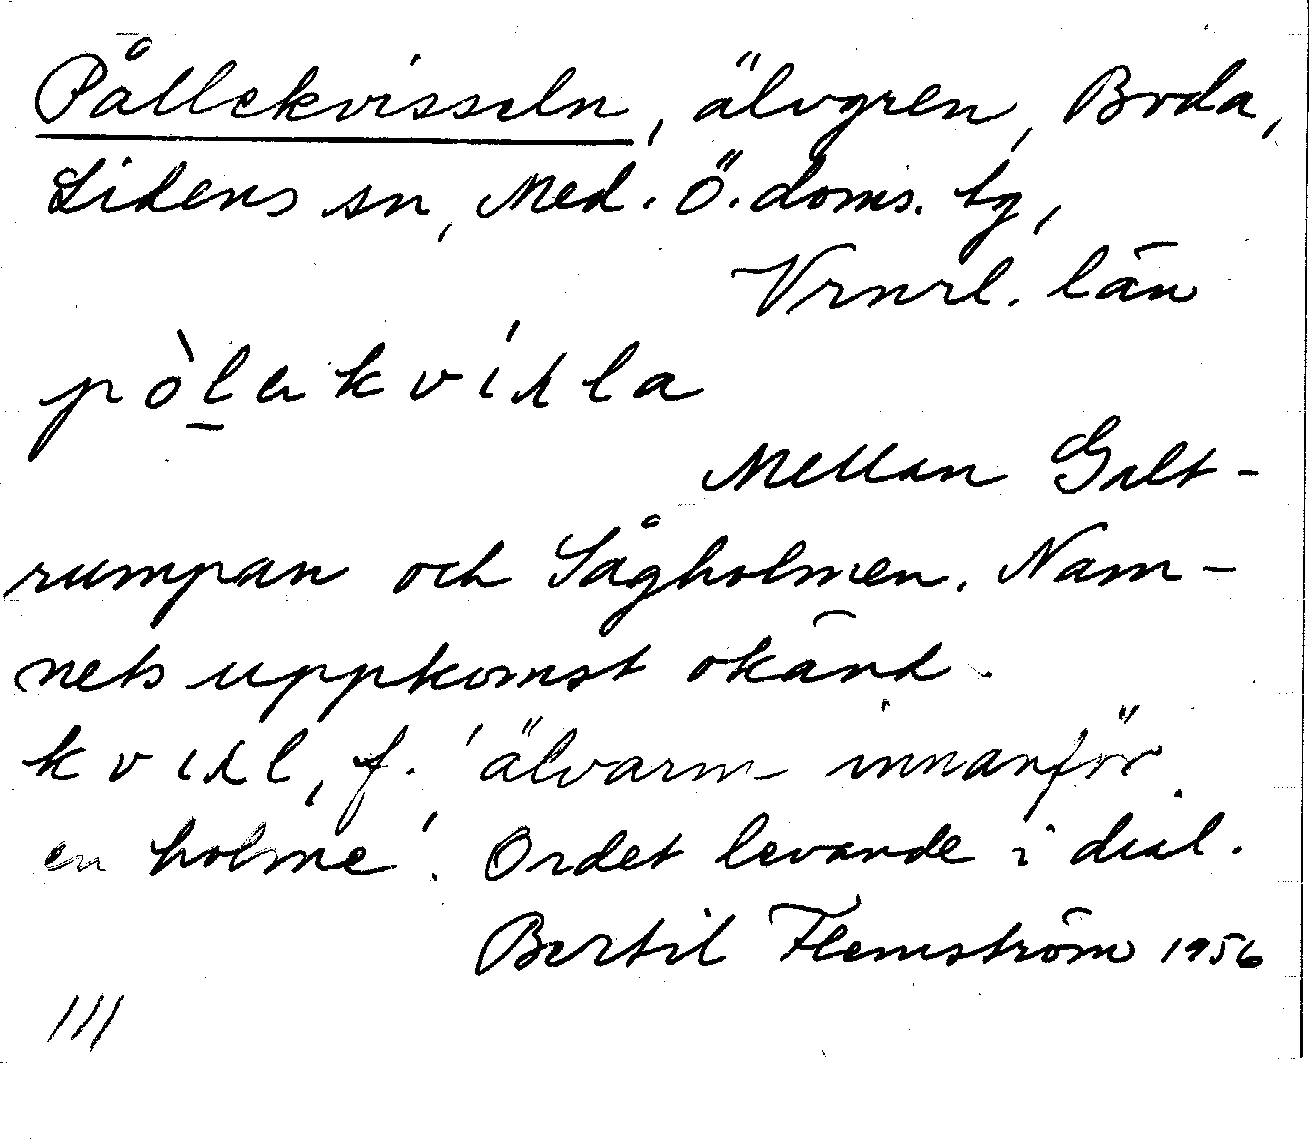 Pållekvisseln, älvgren, Boda,
Lidens sn, Med. Ö. doms. tg,
Vrnrl. län
Mellan Galt-
rumpan och Sågholmen. Nam-
nets uppkomst okänd.
f. 'älvarm innanför
en holme'. Ordet levande i dial.
Bertil Flemström 1956